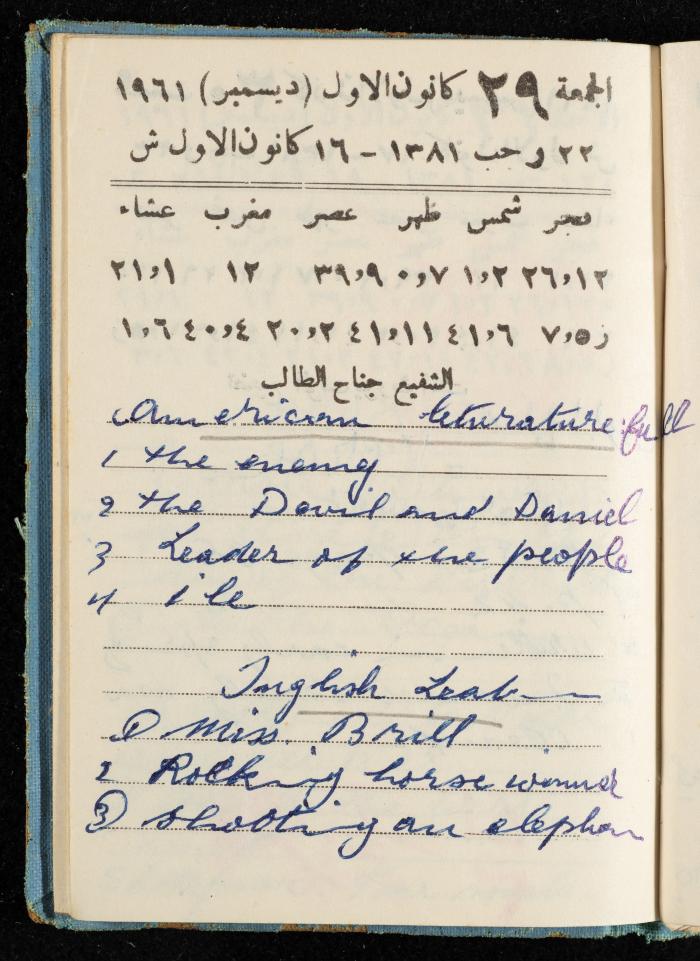 الجمعة ٢٩ كانون الاول (ديسمبر) ١٩٦١
٢٢ رجب ١٣٨١ - ١٦ كانون الاول ش
فجر شمس ظهر عصر مغرب عشاء
١٢,٢٦ ٢,١ ٧,٠ ٩,٣٩ ١٢ ١,٢١
ز٥,٧ ٦,٤١ ١١,٤١ ٢,٢٠ ٤,٤٠ ٦,١
الشفيع جناح الطالب
American leturature full
1 the enemy
2 the Davil and Daniel
3 Leader of the people
4 ile
Inglish
① Miss. Brill
2 Rocking horse winner
③ shooting an elephan